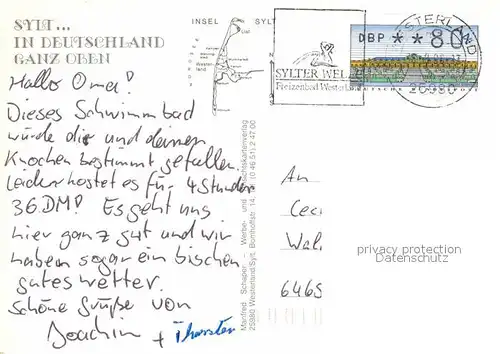 SYLT...
IN DEUTSCHLAND
GANZ OBEN
INSEL SYLT
NORDSEE
List
Westerland
DBP **80
SYLTER WELLE
Freizeitbad Westerland
WESTERLAND
25980
Hallo Oma!
Dieses Schwimmbad
würde dir und deinen
Knochen bestimmt gefallen.
Leider kostet es für 4 Stunden
36 DM! Es geht uns
hier ganz gut und wir
haben sogar ein bischen
gutes Wetter.
Schöne Grüße von
Joachim + Thorsten
Manfred Schaper - Werbe- und Ansichtskartenverlag
25980 Westerland/Sylt, Bomhoffstr. 14, (0 46 51) 2 47 00
An
Ceci
Wal
6465
privacy protection
Datenschutz